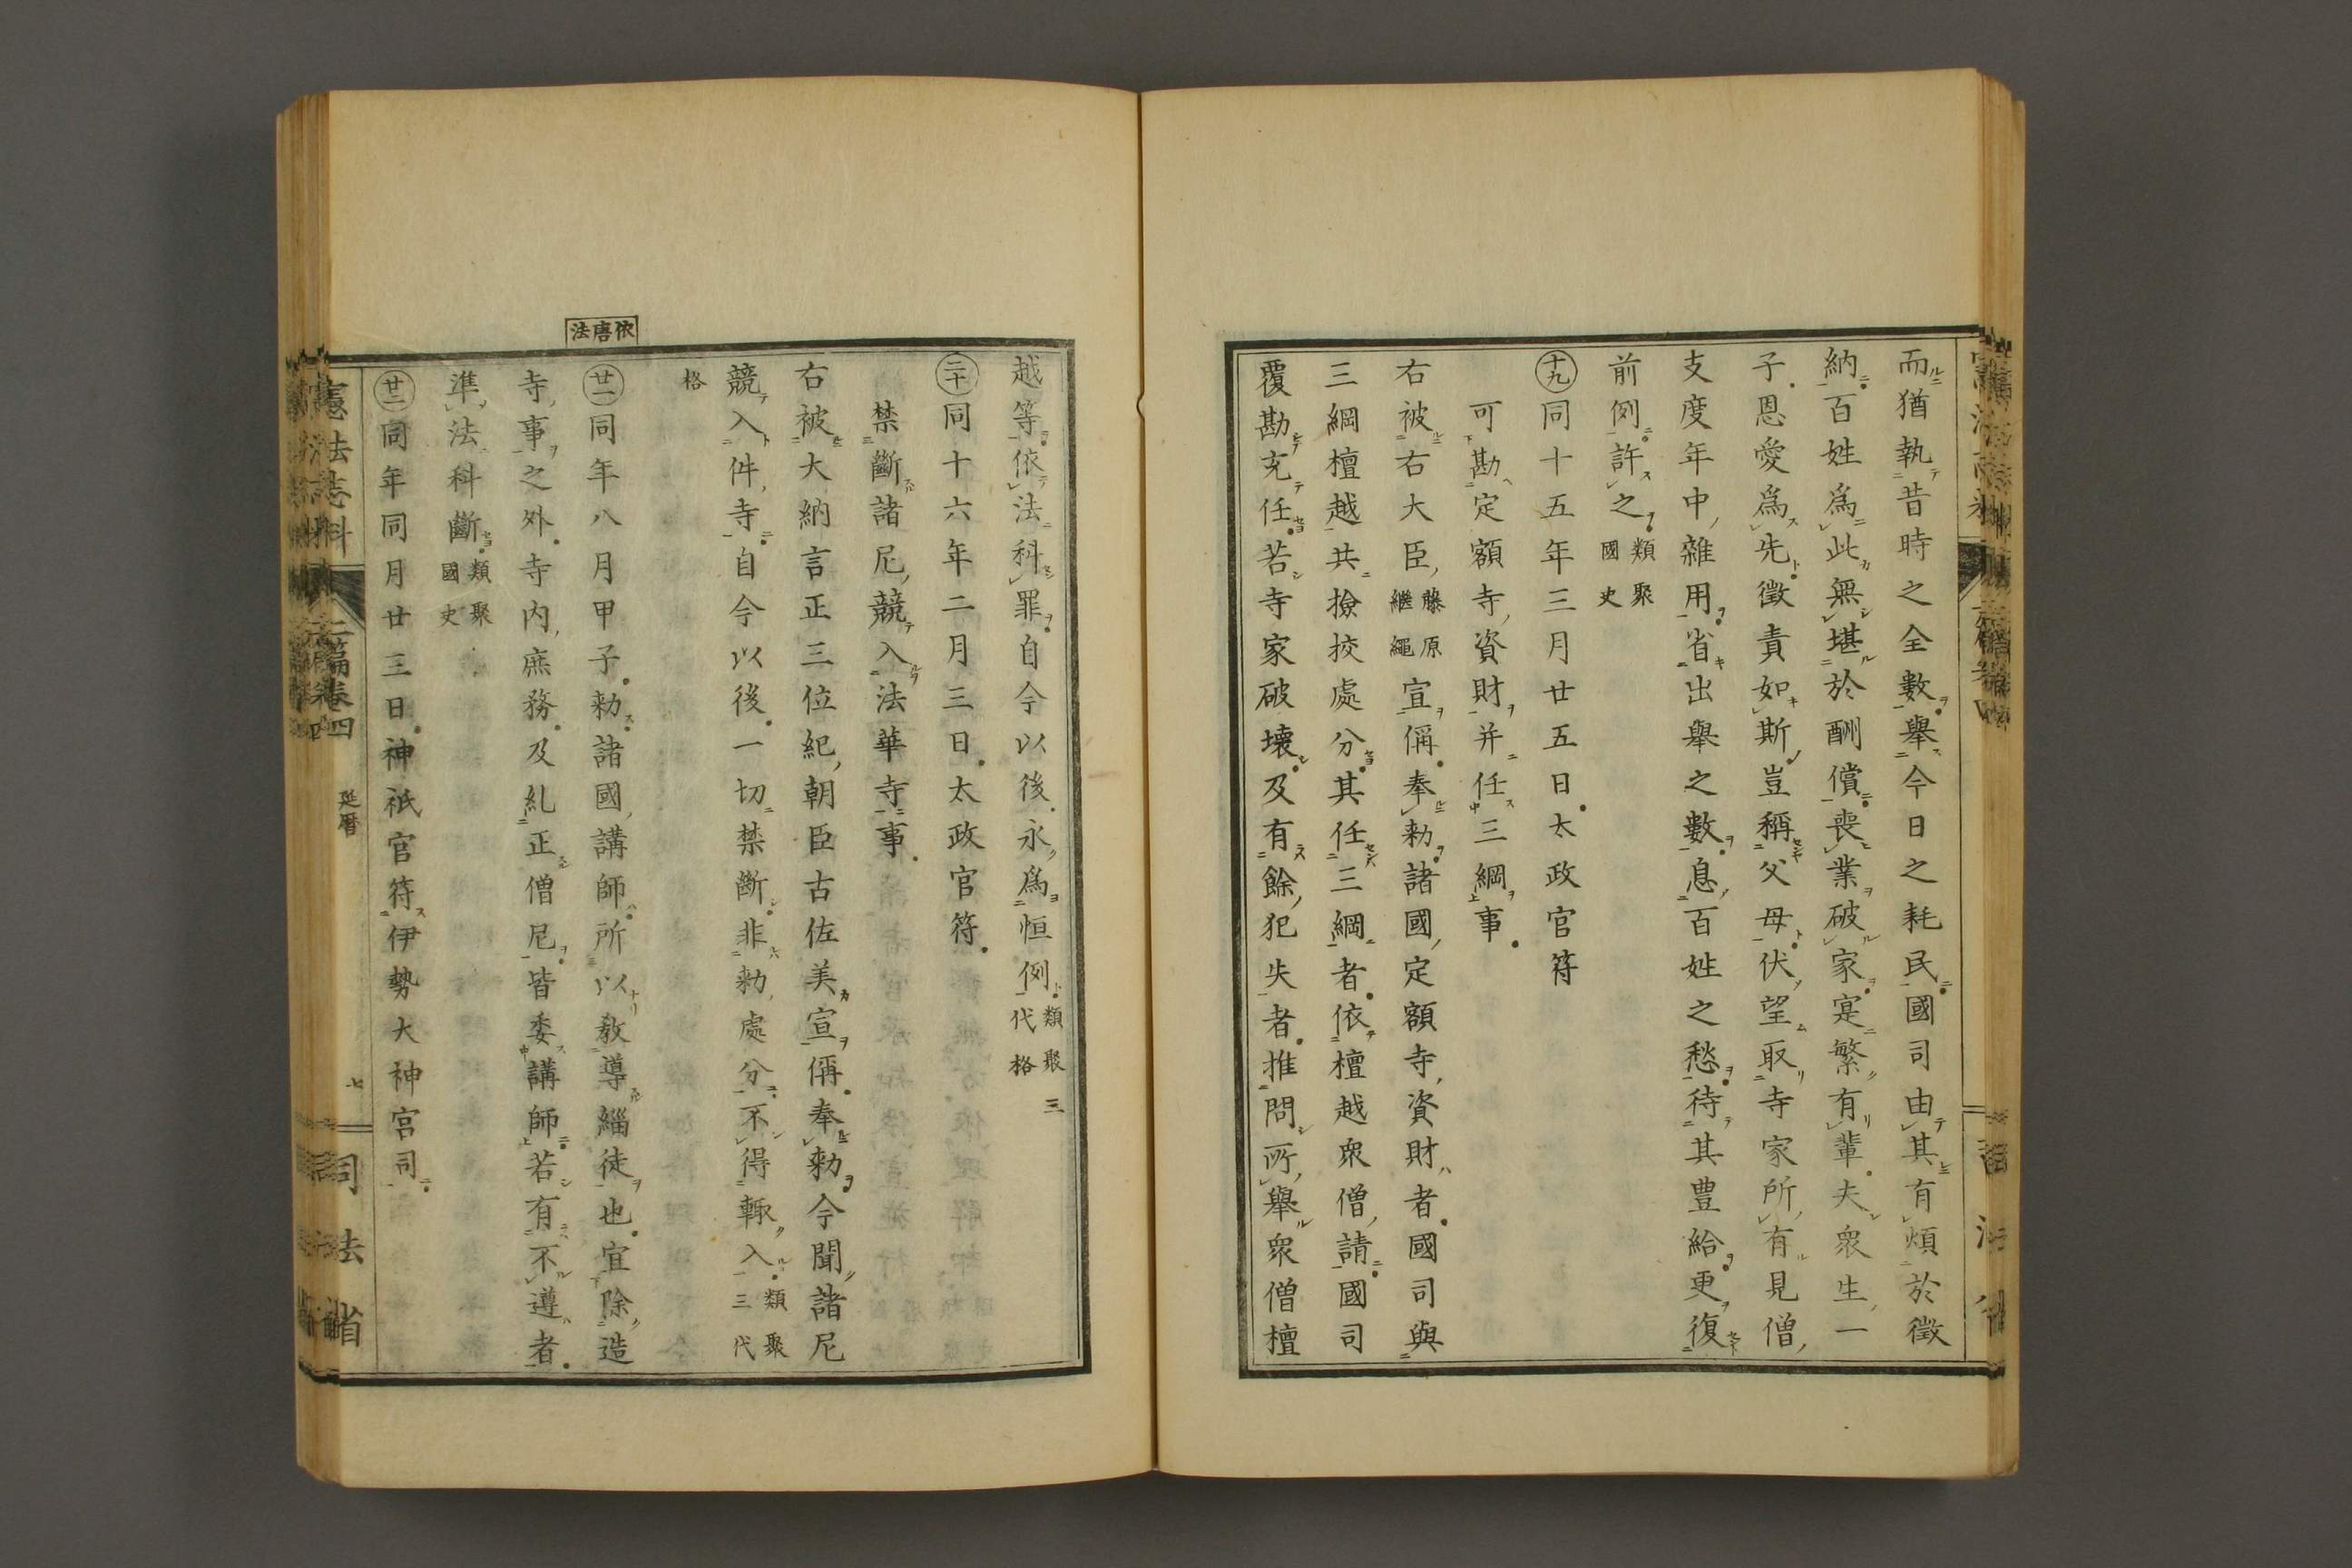 而猶執昔時之全數舉今日之耗民國司由其有煩於徵
納百姓爲此無堪於酬償喪業破家寔繁有輩夫衆生一
子恩愛爲先徵責如斯豈稱父母伏望取寺家所有見僧
支度年中雜用省出舉之數息百姓之愁待其豊給更復
前例許之類聚國史
十九同十五年三月廿五日太政官符
可勘定額寺資財并任三綱事
右被右大臣藤原繼繩宣偁奉勅諸國定額寺資財者國司與
三綱檀越共撿挍處分其任三綱者依檀越衆僧請國司
覆勘充任若寺家破壞及有餘犯失者推問所舉衆僧檀
越等依法科罪自今以後永爲恒例類聚三代格
二十同十六年二月三日太政官符
禁斷諸尼競入法華寺事
右被大納言正三位紀朝臣古佐美宣偁奉勅今聞諸尼
競入件寺自今以後一切禁斷非勅處分不得輙入類聚三代
格
依唐法
廿一同年八月甲子勅諸國講師所以教導緇徒也宜除造
寺事之外寺内庶務及糺正僧尼皆委講師若有不遵者
準法科斷類聚國史
廿二同年同月廿三日神祇官符伊勢大神宮司
憲法志料 二篇卷四 延暦 七 司法省